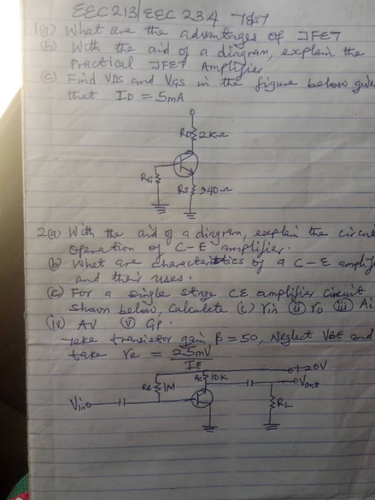 EEC213/EEC 234 Test
1(a) What are the advantages of JFET
(b) With the aid of a diagram, explain the
Practical JFET Amplifier
(c) Find VDS and VGS in the figure below given
that ID = 5mA
RD 2KΩ
RG
RS 340Ω
2(a) With the aid of a diagram, explain the circuit
Operation of C-E amplifier.
(b) What are characteristics of a C-E amplif
and their uses.
(c) For a single stage CE amplifier circuit
shown below, calculate (i) rin (ii) ro (iii) Ai
(iv) AV (v) Gp.
Take transistor gain β = 50, Neglect VBE and
take re = 25mV
IE
+20V
RB 1M
10K
Vout
Vin
RL